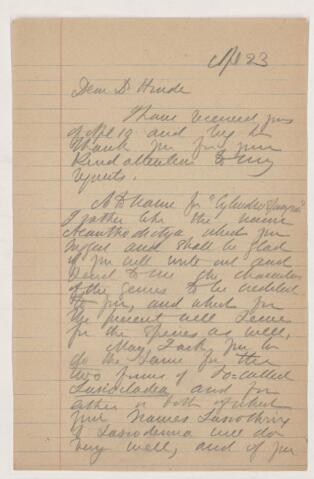 Apl 23
Dear Dr Hinde
I have received yours
of Apl 19 and beg to
thank you for your
kind attention to my
requests.
As to name for "Cylindro
I rather like the name
Acanthodictya, which you
suggest and shall be glad
if you will write out and
send to me the characters
of the genus to be credited
to you, and which for
the present will serve
for the species as well.
May I ask you to
do the same for the
two forms of so-called
Lasiocladia and for
either or both of which
your names Lasiothrix
& Lasioderma will do
very well, and if you